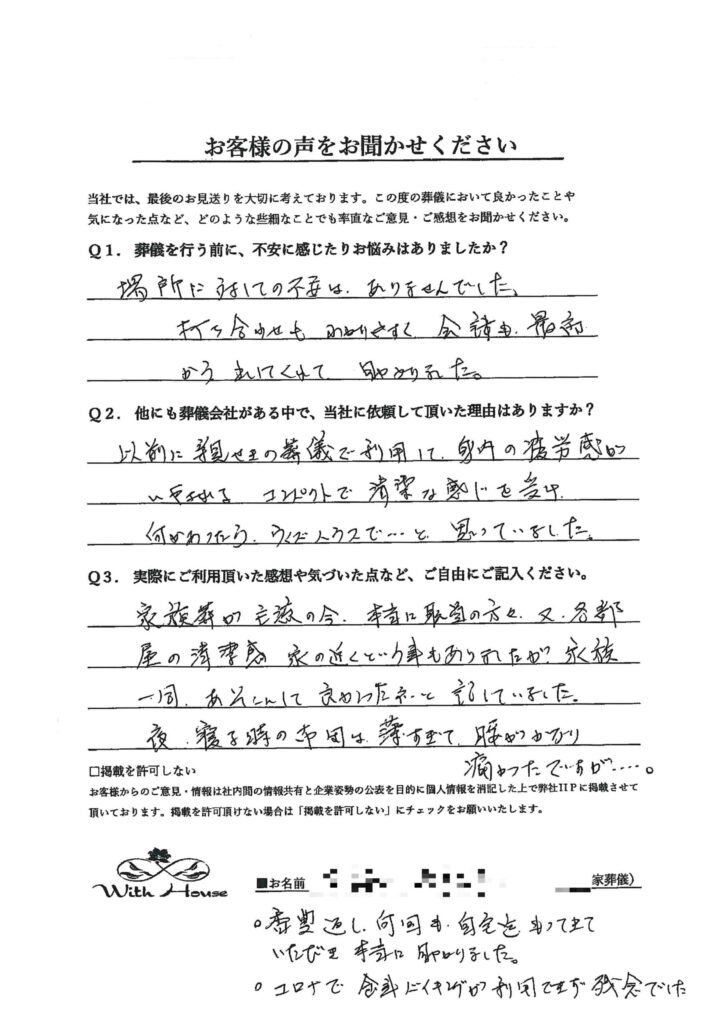 お客様の声をお聞かせください
当社では、最後のお見送りを大切に考えております。この度の葬儀において良かったことや
気になった点など、どのような些細なことでも率直なご意見・ご感想をお聞かせください。
Q1. 葬儀を行う前に、不安に感じたりお悩みはありましたか？
場所に対しての不安は、ありませんでした。
打ち合わせも わかりやすく 会計も 最初
から 出してくれて 助かりました。
Q2. 他にも葬儀会社がある中で、当社に依頼して頂いた理由はありますか？
以前に親せきの葬儀で利用して、身内の疲労感が
いやされる コンパクトで 清潔な感じを受け、
何かあったら、ウィズハウスで…と 思っていました。
Q3. 実際にご利用頂いた感想や気づいた点など、ご自由にご記入ください。
家族葬が主流の今、本当に担当の方々、又、各部
屋の清潔感 家の近くという事もありましたが、家族
一同、あそこにして良かったネ…と 話していました。
夜、寝る時の布団は、薄すぎて、腰がかなり
痛かったですが……。
□掲載を許可しない
お客様からのご意見・情報は社内間の情報共有と企業姿勢の公表を目的に個人情報を消記した上で弊社HPに掲載させて
頂いております。掲載を許可頂けない場合は「掲載を許可しない」にチェックをお願いいたします。
With House
■お名前
家葬儀）
○香典返し、何回も、自宅迄もって来て
いただき 本当に 助かりました。
○コロナで 食事 バイキングが利用できず 残念でした